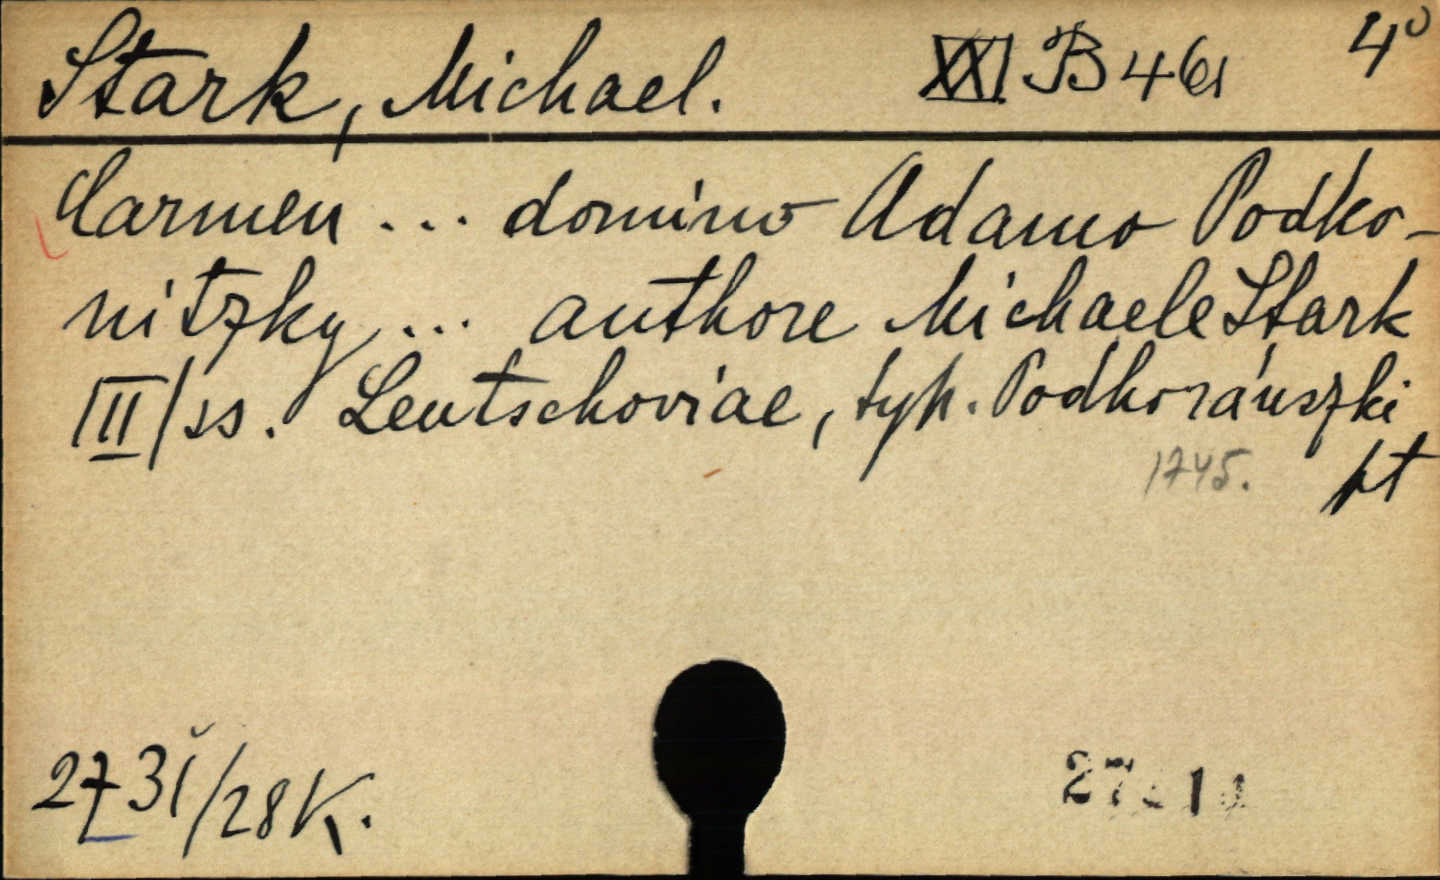 Stark, Michael. XXI B 461 4°
Carmen ... domino Adamo Podko-
nitzky ... authore Michaele Stark
III/ss. Leutschoviae, typ. Podhoránszki
1745. pt
2731/28 K.